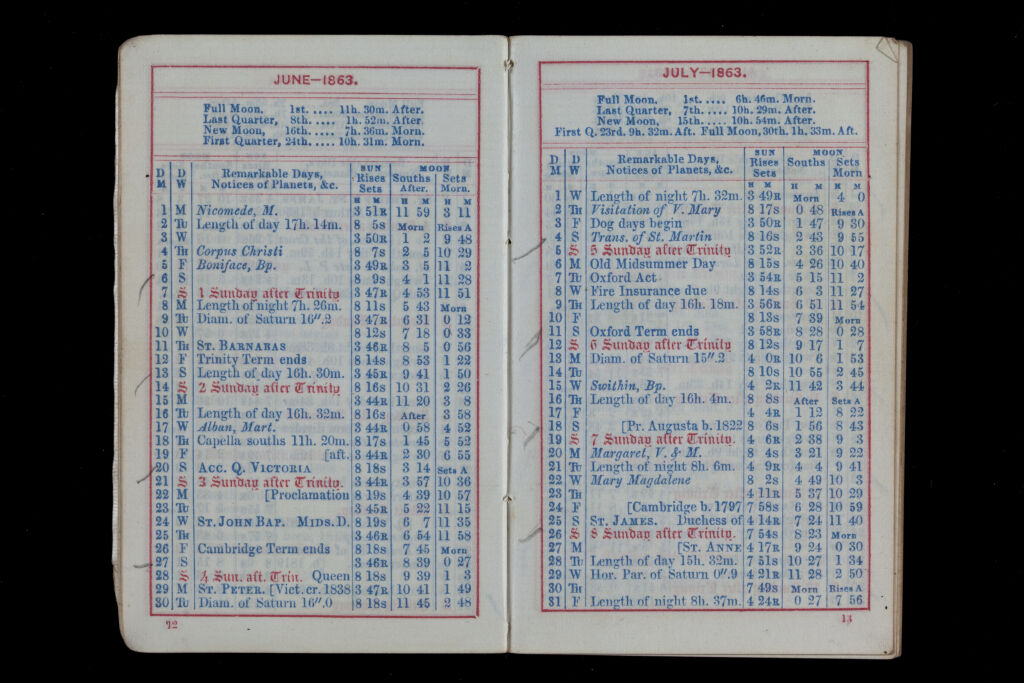 JUNE—1863.
Full Moon, 1st. .... 11h. 30m. After.
Last Quarter, 8th. .... 1h. 52m. After
New Moon, 16th. .... 7h. 36m. Morn.
First Quarter, 24th. .... 10h. 31m. Morn.
D M D W Remarkable Days, Notices of Planets, &c. SUN Rises Sets MOON Souths After. Sets Morn.
H M H M H M
1 M Nicomede, M. 3 51R 11 59 3 11
2 TU Length of day 17h. 14m. 8 5s Morn Rises A
3 W 3 50R 1 2 9 48
4 TH Corpus Christi 8 7s 2 5 10 29
5 F Boniface, Bp. 3 49R 3 5 11 2
6 S 8 9s 4 1 11 28
7 S 1 Sunday after Trinity 3 47R 4 53 11 51
8 M Length of night 7h. 26m. 8 11s 5 43 Morn
9 TU Diam. of Saturn 16".2 3 47R 6 31 0 12
10 W 8 12s 7 18 0 33
11 TH ST. BARNABAS 3 46R 8 5 0 56
12 F Trinity Term ends 8 14s 8 53 1 22
13 S Length of day 16h. 30m. 3 45R 9 41 1 50
14 S 2 Sunday after Trinity 8 16s 10 31 2 26
15 M 3 44R 11 20 3 8
16 TU Length of day 16h. 32m. 8 16s After 3 58
17 W Alban, Mart. 3 44R 0 58 4 52
18 TH Capella souths 11h. 20m. 8 17s 1 45 5 52
19 F [aft. 3 44R 2 30 6 55
20 S ACC. Q. VICTORIA 8 18s 3 14 Sets A
21 S 3 Sunday after Trinity. 3 44R 3 57 10 36
22 M [Proclamation 8 19s 4 39 10 57
23 TU 3 45R 5 22 11 15
24 W ST. JOHN BAP. MIDS. D. 8 19s 6 7 11 35
25 TH 3 46R 6 54 11 58
26 F Cambridge Term ends 8 18s 7 45 Morn
27 S 3 46R 8 39 0 27
28 S 4 Sun. aft. Trin. Queen 8 18s 9 39 1 3
29 M ST. PETER. [Vict. cr. 1838 3 47R 10 41 1 49
30 TU Diam. of Saturn 16".0 8 18s 11 45 2 48
12
JULY—1863.
Full Moon, 1st. .... 6h. 46m. Morn.
Last Quarter, 7th. .... 10h. 29m. After.
New Moon, 15th. .... 10h. 54m. After.
First Q. 23rd. 9h. 32m. Aft. Full Moon, 30th. 1h. 33m. Aft.
D M D W Remarkable Days, Notices of Planets, &c. SUN Rises Sets MOON Souths Sets Morn
H M H M H M
1 W Length of night 7h. 32m. 3 49R Morn 4 0
2 TH Visitation of V. Mary 8 17s 0 48 Rises A
3 F Dog days begin 3 50R 1 47 9 30
4 S Trans. of St. Martin 8 16s 2 43 9 55
5 S 5 Sunday after Trinity 3 52R 3 36 10 17
6 M Old Midsummer Day 8 15s 4 26 10 40
7 TU Oxford Act 3 54R 5 15 11 2
8 W Fire Insurance due 8 14s 6 3 11 27
9 TH Length of day 16h. 18m. 3 56R 6 51 11 54
10 F 8 13s 7 39 Morn
11 S Oxford Term ends 3 58R 8 28 0 28
12 S 6 Sunday after Trinity 8 12s 9 17 1 7
13 M Diam. of Saturn 15".2 4 0R 10 6 1 53
14 TU 8 10s 10 55 2 45
15 W Swithin, Bp. 4 2R 11 42 3 44
16 TH Length of day 16h. 4m. 8 8s After Sets A
17 F 4 4R 1 12 8 22
18 S [Pr. Augusta b. 1822 8 6s 1 56 8 43
19 S 7 Sunday after Trinity. 4 6R 2 38 9 3
20 M Margaret, V. & M. 8 4s 3 21 9 22
21 TU Length of night 8h. 6m. 4 9R 4 4 9 41
22 W Mary Magdalene 8 2s 4 49 10 3
23 TH 4 11R 5 37 10 29
24 F [Cambridge b. 1797 7 58s 6 28 10 59
25 S ST. JAMES. Duchess of 4 14R 7 24 11 40
26 S 8 Sunday after Trinity. 7 54s 8 23 Morn
27 M [ST. ANNE 4 17R 9 24 0 30
28 TU Length of day 15h. 32m. 7 51s 10 27 1 34
29 W Hor. Par. of Saturn 0".9 4 21R 11 28 2 50
30 TH 7 49s Morn Rises A
31 F Length of night 8h. 37m. 4 24R 0 27 7 56
13